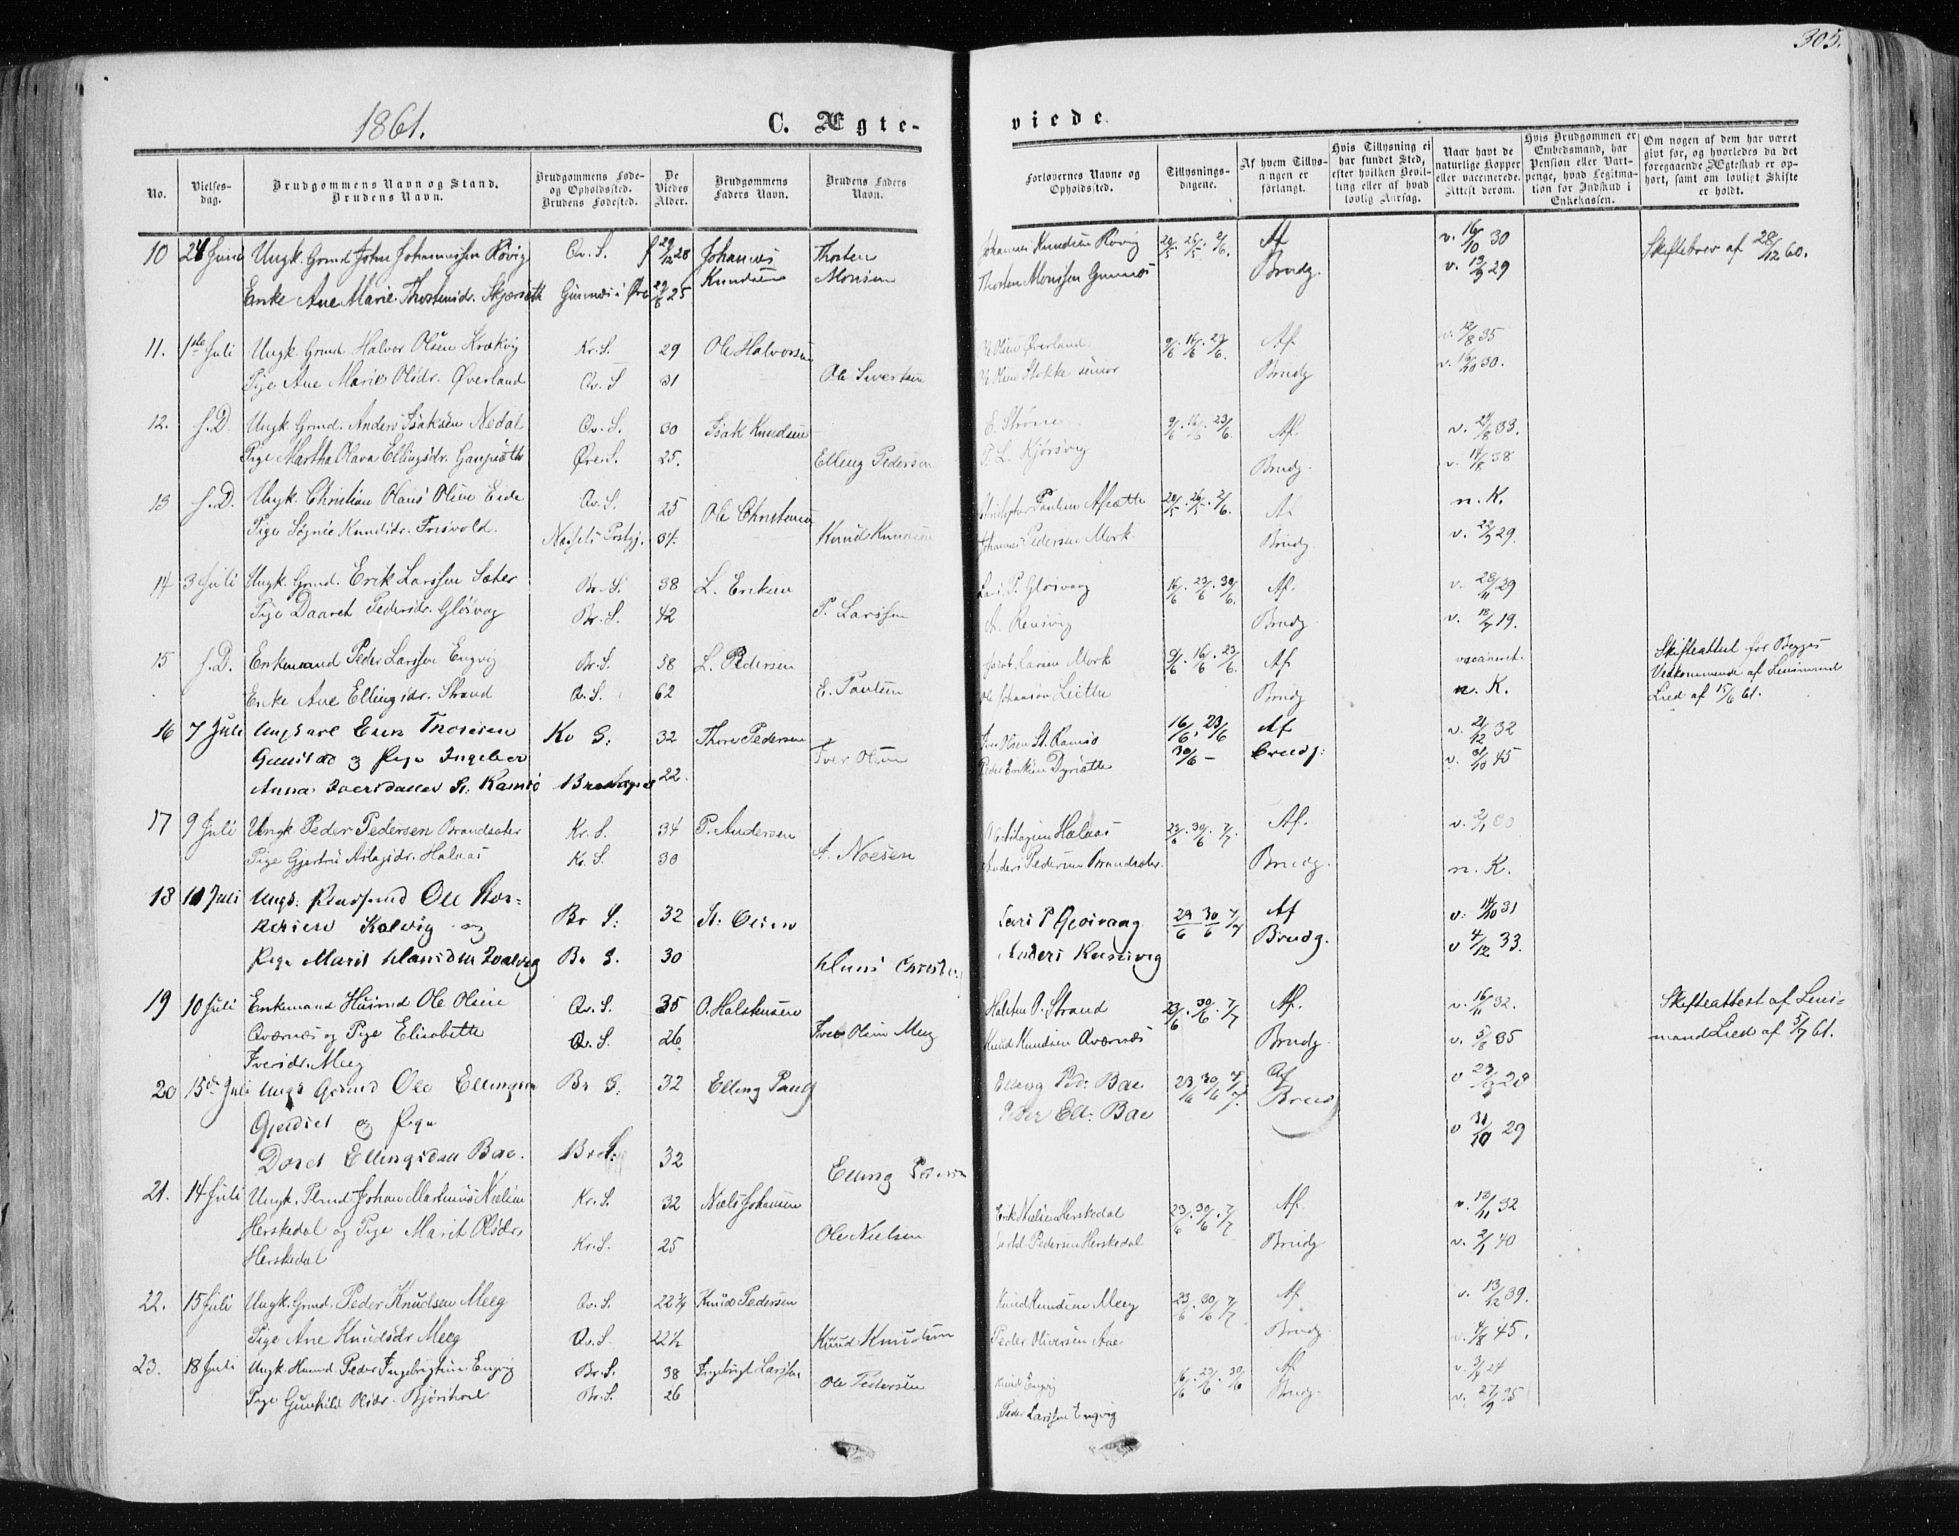 305.
1861.
C. Ægte-
viede.
No.
Vielses-
dag.
Brudgommens Navn og Stand.
Brudens Navn.
Brudgommens Føde-
og Opholdssted.
Brudens Fødested.
De
Viedes
Alder.
Brudgommens
Faders Navn.
Brudens Faders
Navn.
Forlovernes Navne og
Opholdssted.
Tillysnings-
dagene.
Af hvem Tillys-
ningen er
forlangt.
Hvis Tillysning ei
har fundet Sted,
efter hvilken Bevil-
ling eller af hvad
lovlig Aarsag.
Naar havt de
naturlige Kopper
eller vaccinerede.
Attest derom.
Hvis Brudgommen er
Embedsmand, har
Pension eller Vart-
penge, hvad Legitima-
tion for Indskud i
Enkekassen.
Om nogen af dem har været
givt før, og hvorledes da det
foregaaende Ægteskab er op-
hørt, samt om lovligt Skifte
er holdt.
10 24 Juni Ungk. Grmd John Johannessen Røvig Qv. S. f 29/12 28 Johannes Knudsen
Enke Ane Marie Thostensdr. Gimnæs i Øre 29/6 25 Thosten Monsen
Johannes Knudsen Røvig 20/5. 26/5. 2/6. Af v. 16/10 30 Skiftebrev af 28/12 60.
Thosten Monssen Gimnæs Brudg. v. 13/9 29
11. 1ste Juli Ungk. Grmd. Halvor Olsen Krækvig Kr. S. 29 Ole Halvorsen
Pige Ane Marie Olsdr. Øverland Qv. S 31 Ole Sivertsen
Olsen Øverland 9/6. 16/6. 23/6. Af v. 12/8 35
Stokke senior Brudg v. 19/10 30.
12. S.D. Ungk. Grmd. Anders Isaksen Nedal Qv. S. 30 Isak Knudsen
Pige Martha Olava Ellingsdr. Øre. S. 25. Elling Pedersen
E. Strøm 9/6. 16/6. 23/6. Af. v. 29/8 33.
P. L. Kjørsvig Brudg. v. 14/8 38
13 S.D. Ungk. Christian Olaus Olsen Eide Qv. S. 25 Ole Christensen
Pige Sygnie Knudsdr. Frisvold. 34. Knud Knudsen
Paulsen 20/5. 26/5. 2/6. Af n. K.
Johannes Pedersen Mork Brudg v. 22/9 29.
14 3 Juli Ungk. Grmd. Erik Larssen Sæter Br. S. 38 L. Eriksen
Pige Daaret Pedersdr. Gløsvag Br. S. 42 P. Larssen
Lars P. Gløsvaag 16/6. 23/6. 30/6. Af. v. 28/11 29
A. Rensvig Brudg. v. 12/7 19.
15 S.D. Enkemand Peder Larssen Engvig Br. S. 38 L. Pedersen
Enke Ane Ellingsdr. Strand Qv. S. 62 E. Paulsen
Jacob Larsen Mork 9/6. 16/6. 23/6. Af vaccineret. Skifteattest for Begges
Ole Johansen Leithe Brudg n. K. Vedkommende af Lensmand
Lied af 15/6 61.
16 7 Juli Ungkarl Even Thoresen Kv S: 32 Thore Pedersen
Gunstad og Pige Ingeber
Anna Iversdatter St. Ramsø 22. Iver Olsen
Iver Olsen St. Ramsø 16/6. 23/6 Af v. 21/12 32
Peder Eriksen 30/6 – Brudg: v. 31/10 45
17 9 Juli Ungk. Peder Pedersen Brandsæter Kr. S. 34 P. Andersen
Pige Gjertru Aslagsdr. Halaas Kv. S. 30 A. Noesen
Halaas 23/6. 30/6. 7/7. Af. v. 2/1
Anders Pedersen Brandsæter. Brudg. n. K.
18 10 Juli Ungk: Ole Br S: 32 Olsen
Kalvig og
Pige Marit Hansdtr Br S. 30 Hans
Lars P Gløsvaag 23/6 30/6 7/7 Af v: 14/10 31
Anders Rensvig Brudg. v 4/12 33.
19 10 Juli Enkemand Husmd Ole Olsen Qv. S. 35 O. Halstensen
Qværnæs og Pige Elisabeth Qv. S. 26 Iver Olsen Meeg
Iversdr. Meeg
Halsten O. Strand 23/6. 30/6. 7/7 Af. v. 16/11 32. Skifteattest af Lens-
Knud Knudsen Qværnæs Brudg. v. 5/8 35 mand Lied af 5/7 61.
20 15de Juli Ungk Grmd Ole Ellingsen Br S: 32 Elling Paulsen
og Pige
Doret Ellingsdatt Bae. Br S. 32 Elling Pedersen
Elling Ped: Bae 23/6 30/6 7/7 Af v 23/ 28
Peder Ell: Bae Brud v 31/10 29
21. 14 Juli Ungk. Johan Martinus Nielsen Kr. S. 32 Niels Johansen
Herskedal og Pige Marit Olsdr. Kr. S. 25 Ole Nielsen
Herskedal
Erik Nielsen Herskedal 23/6. 30/6. 7/7 Af. v. 13/11 32
Pedersen Herskedal Brudg v. 2/1 40
22. 15 Juli Ungk. Grmd. Peder Knudsen Meeg Qv. S. 22 3/4 Knud Pedersen
Pige Ane Knudsdr Meeg Qv. S. 22 1/2 Knud Knudsen
Knud Knudsen Meeg 23/6. 30/6. 7/7 Af. v. 13/12 39.
Peder Oliversen Aae Brudg v. 4/8 45.
23. 18 Juli Ungk. Husmd Peder Ingebrigtsen Engvig Br. S. 38 Ingebrigt Larssen
Pige Gunhild Olsdr. Br. S 26 Ole Pedersen
Knud Engvig 16/6. 23/6. 30/6 Af v. 3/9 24
Peder Larssen Engvig Brudg. v. 27/9 35